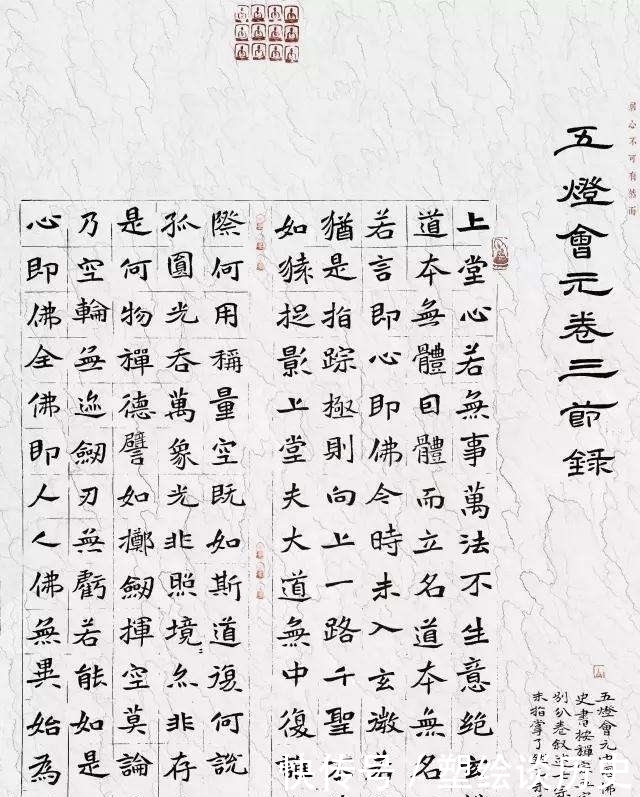 五燈會元卷三節錄
上堂心若無事萬法不生意絕玄
道本無體因體而立名道本無名
若言即心即佛今時未入玄微
猶是指踪極則向上一路千聖
如猿捉影上堂夫大道無中復
際何用稱量空既如斯道復何說
孤圓光吞萬象光非照境亦非存
是何物禪德譬如擲劒揮空莫論
乃空輪無迹劒刃無虧若能如是
心即佛全佛即人人佛無異始為
五燈會元
史書按禪
別分卷叙
未指掌了
快传号 / 塑绘谈历史